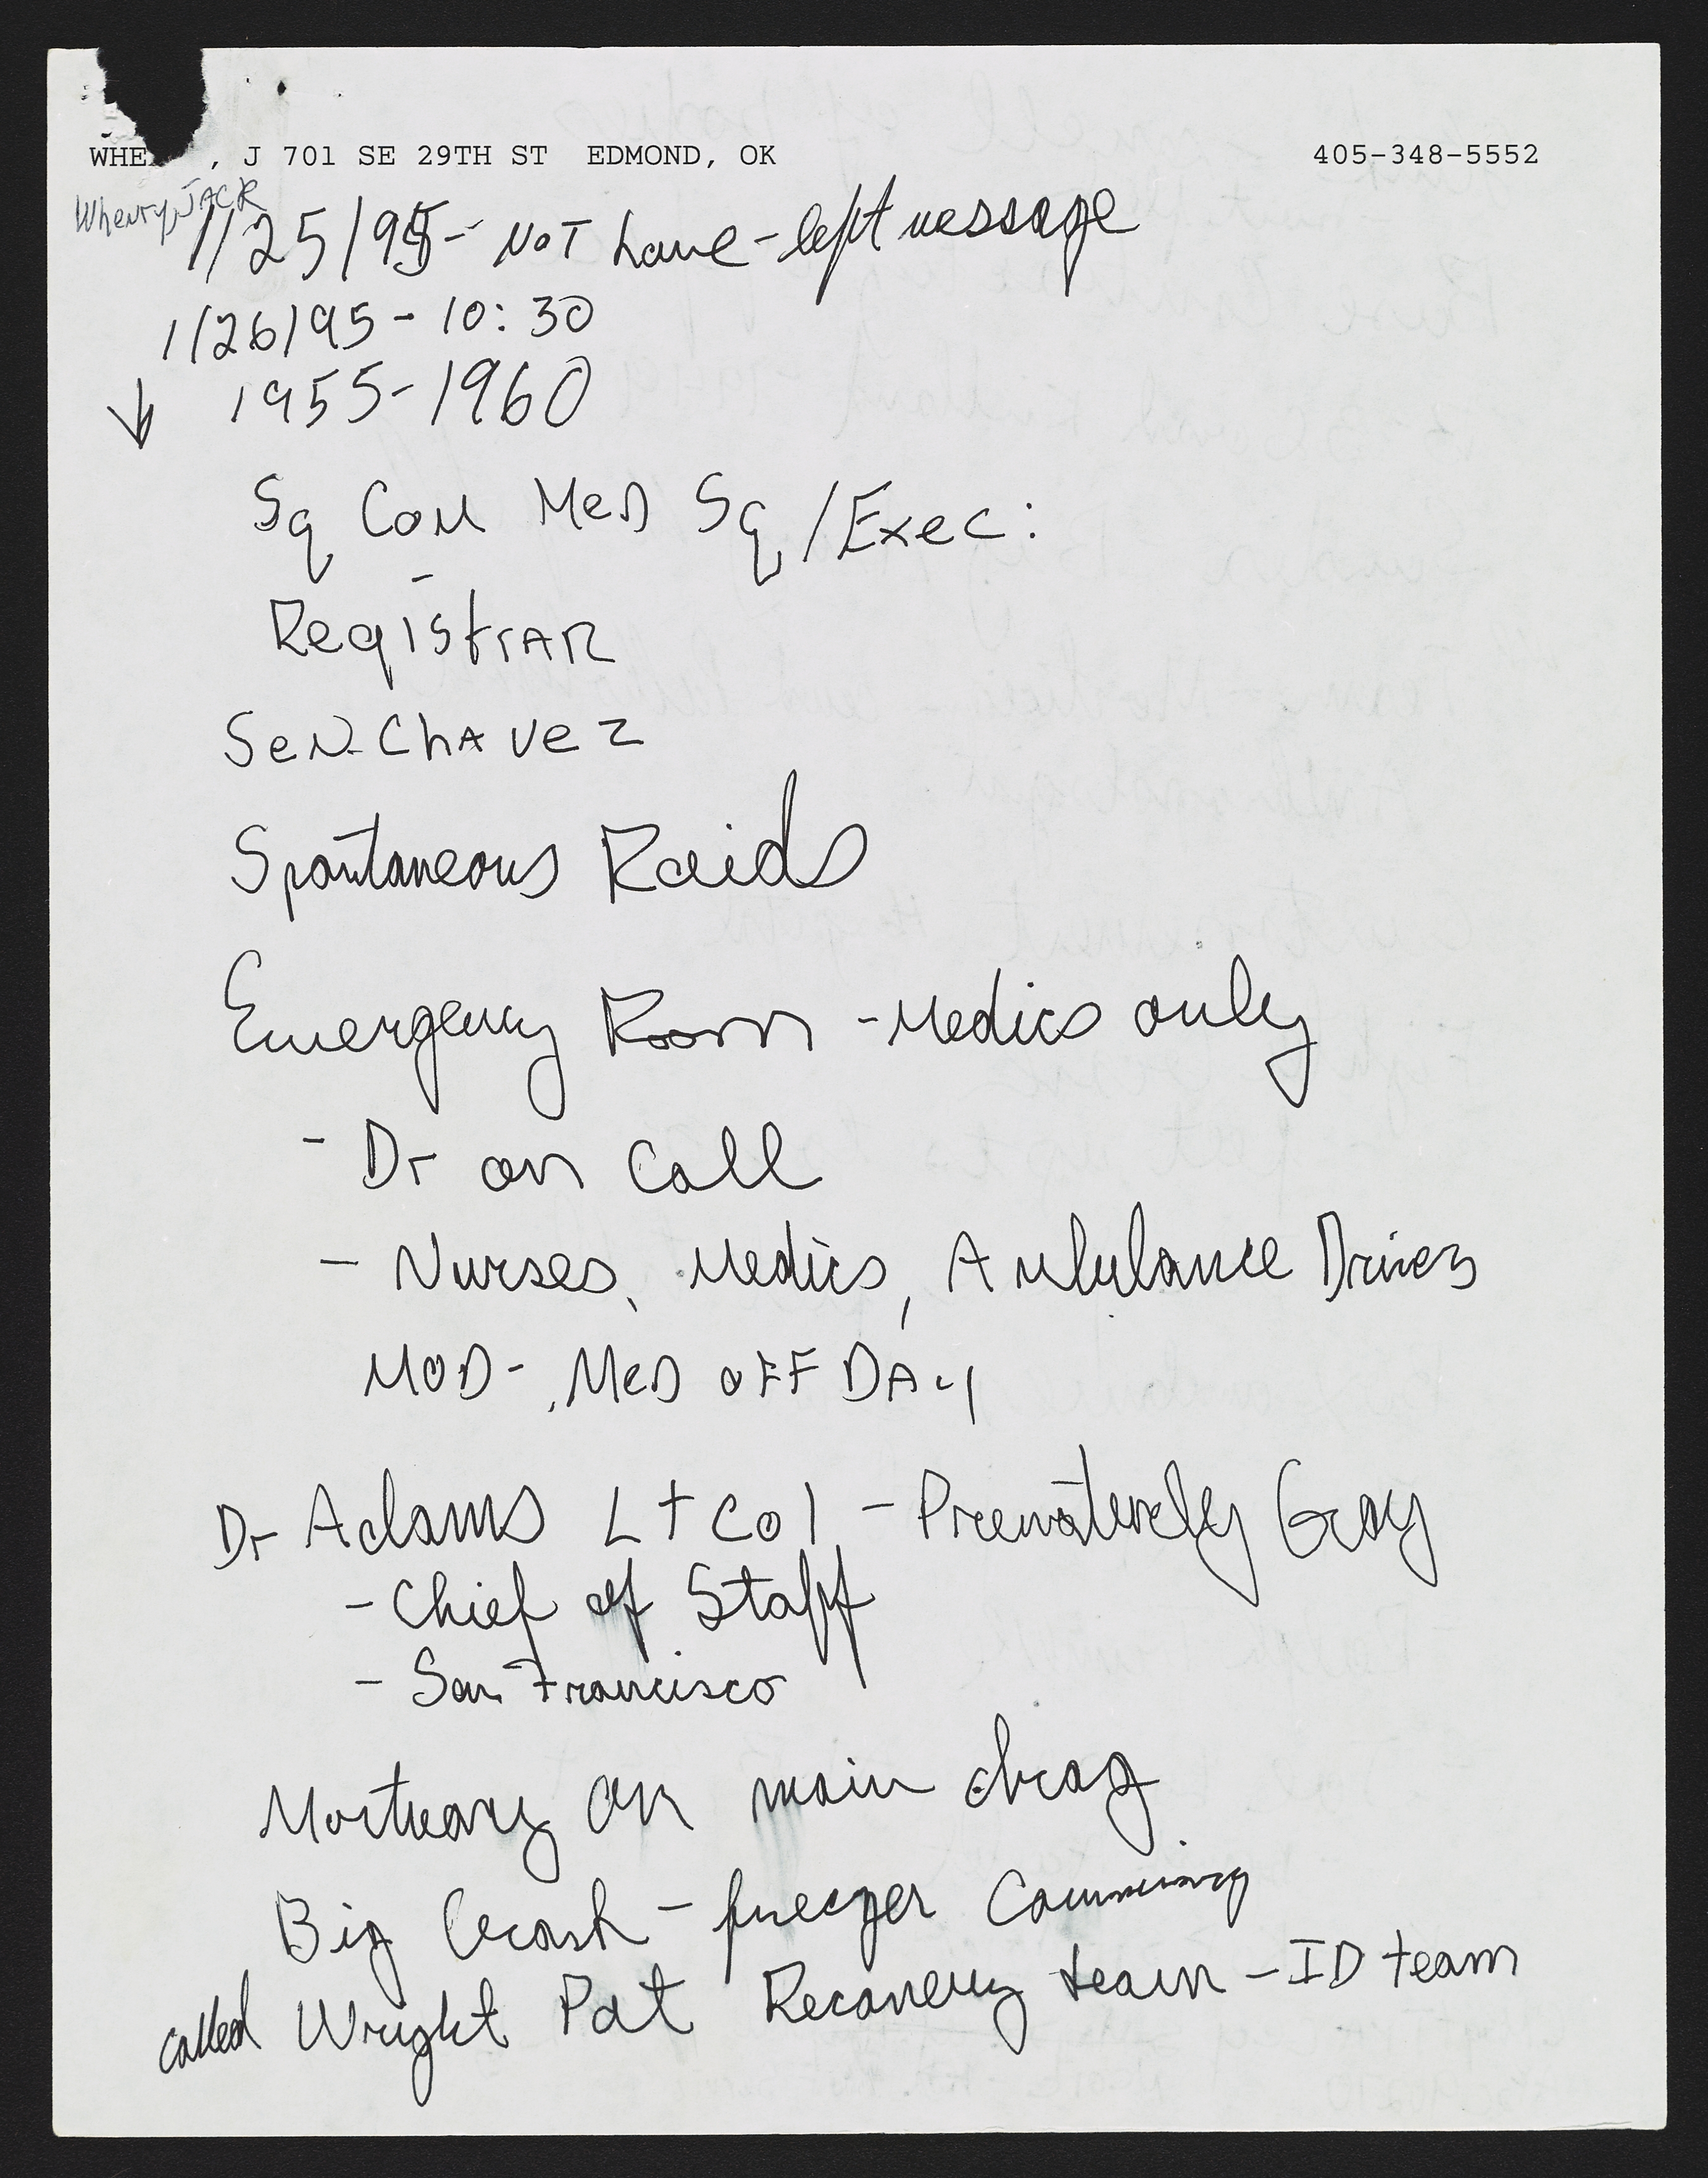 WHE , J 701 SE 29TH ST EDMOND, OK 405-348-5552
Whenry, JACK
1/25/95 - NOT home - left message
1/26/95 - 10:30
↓ 1955-1960
Sq Com Med Sq /Exec:
Registrar
Sen. Chavez
Spontaneous Raids
Emergency Room - Medics only
- Dr on Call
- Nurses, Medics, Ambulance Drivers
MOD - Med OFF DAY
Dr Adams Lt Col - Prematurely Gray
- Chief of Staff
- San Francisco
Mortuary on main drag
Big Crash - freezer Comming
called Wright Pat Recovery team - ID team